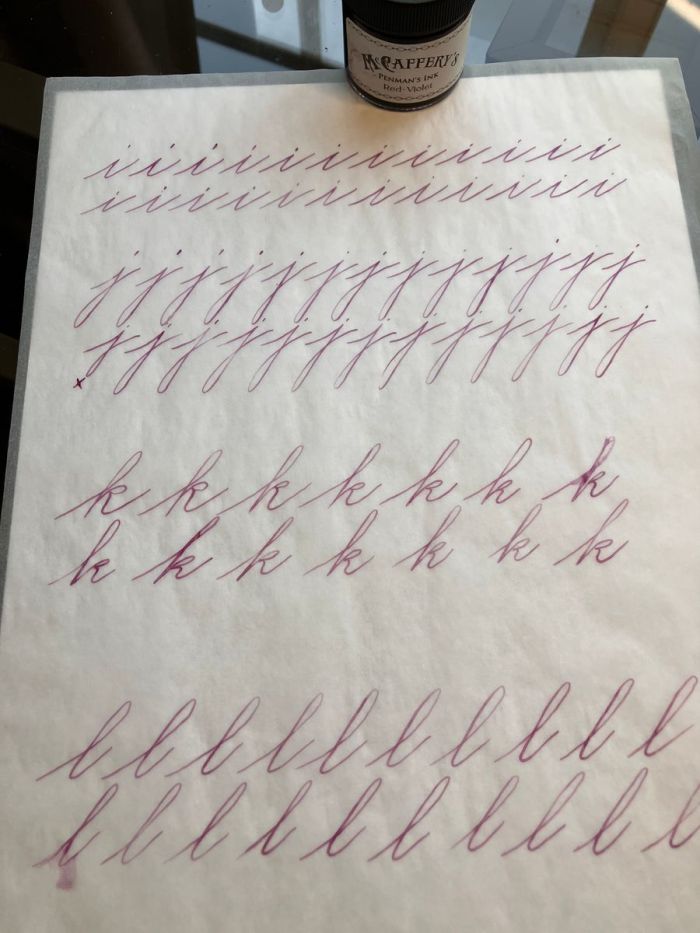 McCaffery's
Penman's Ink
Red-Violet
i i i i i i i i i i i i i
i i i i i i i i i i i i i
j j j j j j j j j j j j j
j j j j j j j j j j j j j
x
k k k k k k k
k k k k k k k
l l l l l l l l l l
l l l l l l l l l l